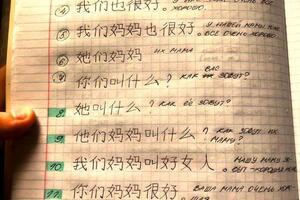 ④ 我们也很好. У НАС ТОЖЕ ВСЕ ХОРОШО.
⑤ 我们妈妈也很好. У НАШЕЙ МАМЫ ТОЖЕ ВСЕ ОЧЕНЬ ХОРОШО.
⑥ 她们妈妈 ИХ МАМА
⑦ 你们叫什么? КАК ВАС ЗОВУТ?
8. 她叫什么? КАК ЕЁ ЗОВУТ?
9. 他们妈妈叫什么? КАК ЗОВУТ ИХ МАМУ?
10. 我们妈妈叫好女人. НАШУ МАМУ ЗОВУТ
11. 你们妈妈很好. ВАША МАМА ОЧЕНЬ ХОРОШАЯ